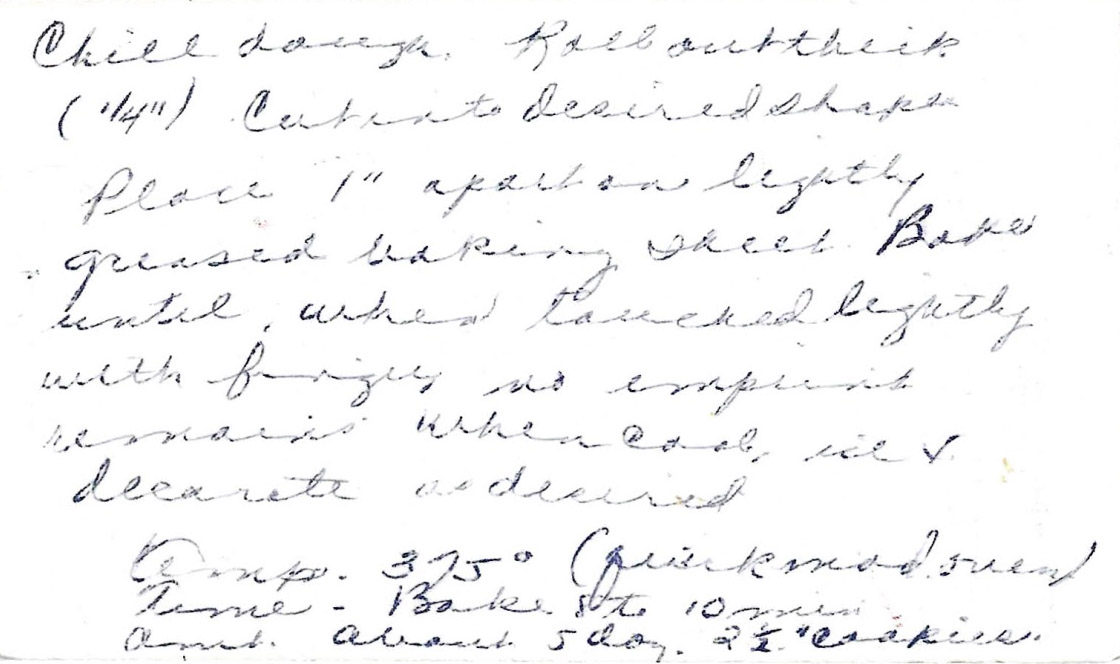 Chill dough. Roll out thick
(1/4") Cut into desired shape
Place 1" apart on lightly
greased baking sheet. Bake
until, when touched lightly
with finger, no imprint
remains When cool, ice &
decorate as desired
Temp. 375° (quick mod. oven)
Time - Bake 8 to 10 min
Amt. About 5 doz. 2 1/2" cookies.